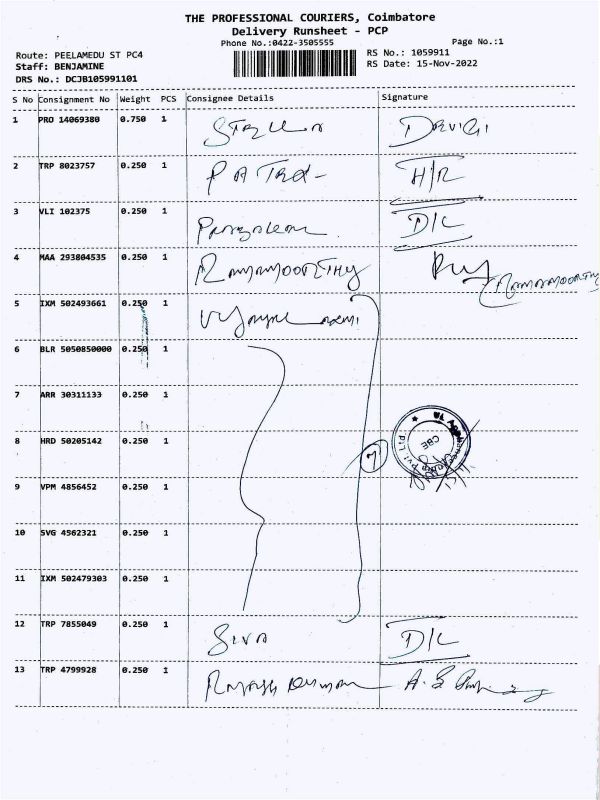 THE PROFESSIONAL COURIERS, Coimbatore
Delivery Runsheet - PCP
Phone No.:0422-3505555 Page No.:1
Route: PEELAMEDU ST PC4 RS No.: 1059911
Staff: BENJAMINE RS Date: 15-Nov-2022
DRS No.: DCJB105991101
S No Consignment No Weight PCS Consignee Details Signature
1 PRO 14069380 0.750 1
2 TRP 8023757 0.250 1 H/R
3 VLI 102375 0.250 1 D/L
4 MAA 293804535 0.250 1 RAMAMOORTHY RAMAMOORTHY
5 IXM 502493661 0.250 1
6 BLR 5050850000 0.250 1
7 ARR 30311133 0.250 1
8 HRD 50205142 0.250 1 7 CBE Pvt. Ltd.
9 VPM 4856452 0.250 1
10 SVG 4562321 0.250 1
11 IXM 502479303 0.250 1
12 TRP 7855049 0.250 1 Siva D/L
13 TRP 4799928 0.250 1